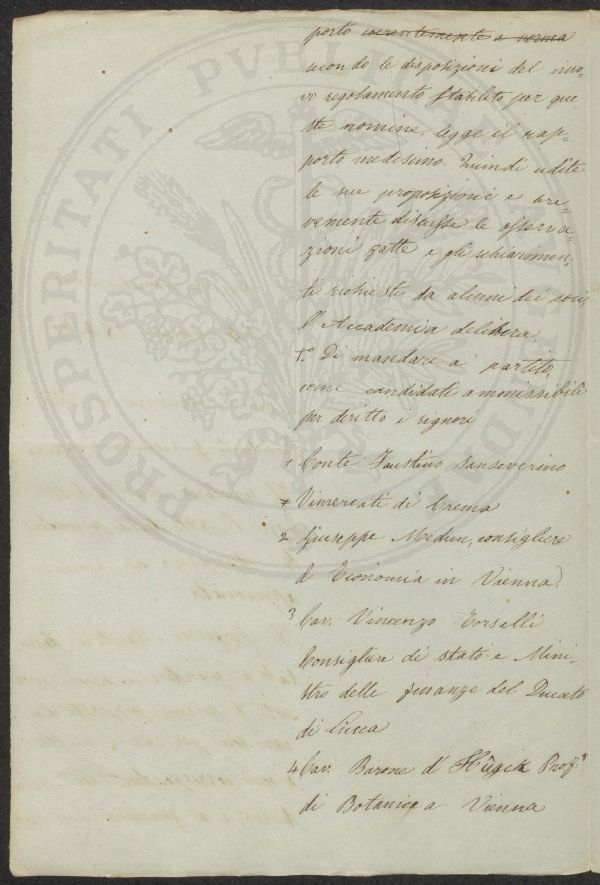 porto coerentemente a norma
secondo le disposizioni del nuo-
vo regolamento stabilito per que-
ste nomine, legge il rap-
porto medesimo. Quindi udite
le sue proposizioni e bre-
vemente discusse le osserva-
zioni fatte e gli schiarimen-
ti richiesti da alcuni dei soci,
l'Accademia delibera
1.º Di mandare a partito,
come candidati ammissibili
per diritto i signori
1 Conte Faustino Sanseverino
Vimercati di Crema
2 Giuseppe Medun, consigliere
d'Economia in Vienna.
3 Cav. Vincenzo Torselli
Consigliere di stato e Mini-
stro delle finanze del Ducato
di Lucca
4 Cav. Barone d' Hügel Prof.r
di Botanica a Vienna
PROSPERITATI PVBLICAE